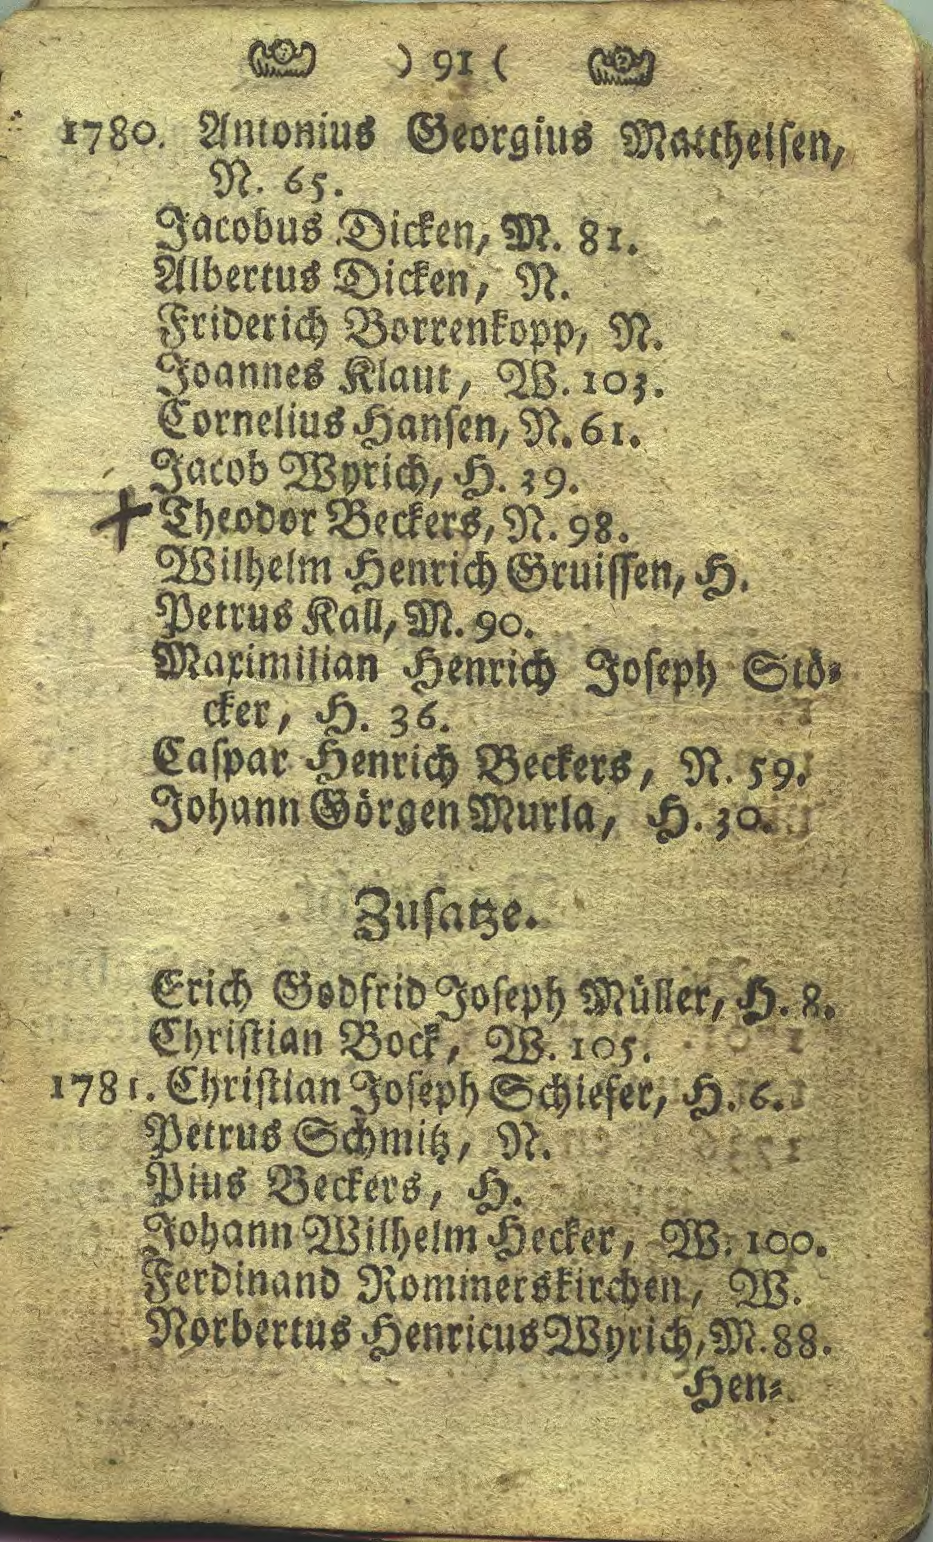 ) 91 (
1780. Antonius Georgius Mattheisen,
N. 65.
Jacobus Dicken, M. 81.
Albertus Dicken, N.
Friderich Borrenkopp, N.
Joannes Klaut, W. 103.
Cornelius Hansen, N. 61.
Jacob Wyrich, H. 39.
Theodor Beckers, N. 98.
Wilhelm Henrich Gruissen, H.
Petrus Kall, M. 90.
Maximilian Henrich Joseph Stö-
cker, H. 36.
Caspar Henrich Beckers, N. 59.
Johann Görgen Murla, H. 30.
Zusatze.
Erich Godfrid Joseph Müller, H. 8.
Christian Bock, W. 105.
1781. Christian Joseph Schiefer, H. 6.
Petrus Schmitz, N.
Pius Beckers, H.
Johann Wilhelm Hecker, W. 100.
Ferdinand Rommerskirchen, W.
Norbertus Henricus Wyrich, M. 88.
Hen-